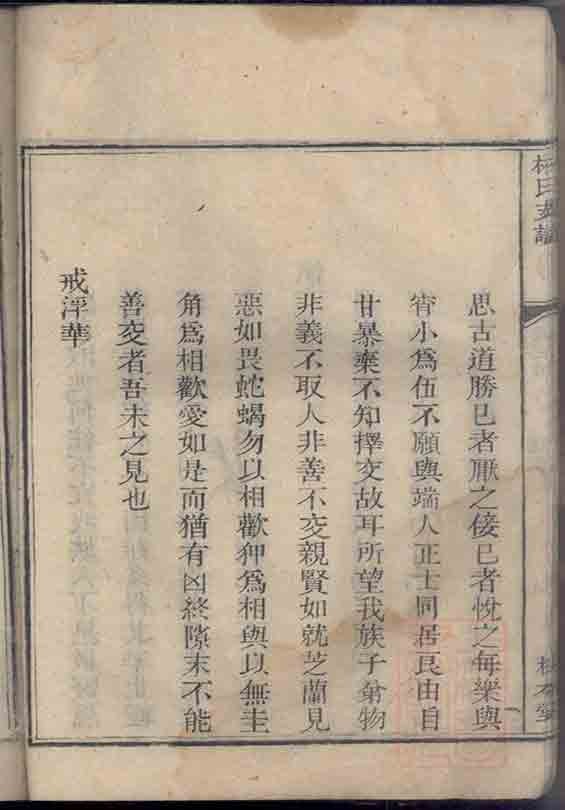 思古道勝已者厭之佞已者悅之每樂與
宵小爲伍不願與端人正士同居良由自
甘暴棄不知擇交故耳所望我族子弟物
非義不取人非善不交親賢如就芝蘭見
惡如畏蛇蝎勿以相歡狎爲相與以無圭
角爲相歡愛如是而猶有凶終隙末不能
善交者吾未之見也
戒浮華